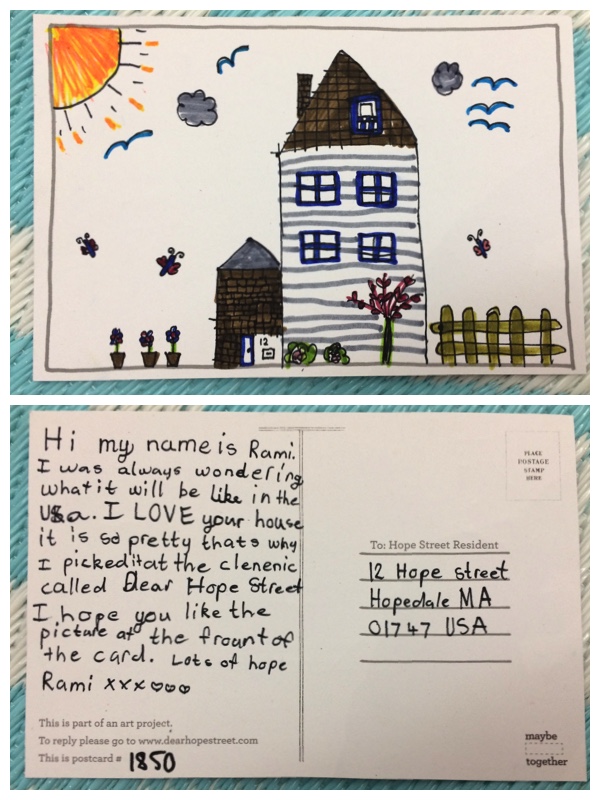 12
Hi my name is Rami.
I was always wondering
what it will be like in the
Usa. I LOVE your house
it is so pretty thats why
I picked it at the clenenic
called Dear Hope Street
I hope you like the
picture at the frount of
the card. Lots of hope
Rami xxx♡♡♡
This is part of an art project.
To reply please go to www.dearhopestreet.com
This is postcard # 1850
PLACE
POSTAGE
STAMP
HERE
To: Hope Street Resident
12 Hope street
Hopedale MA
01747 USA
maybe
together